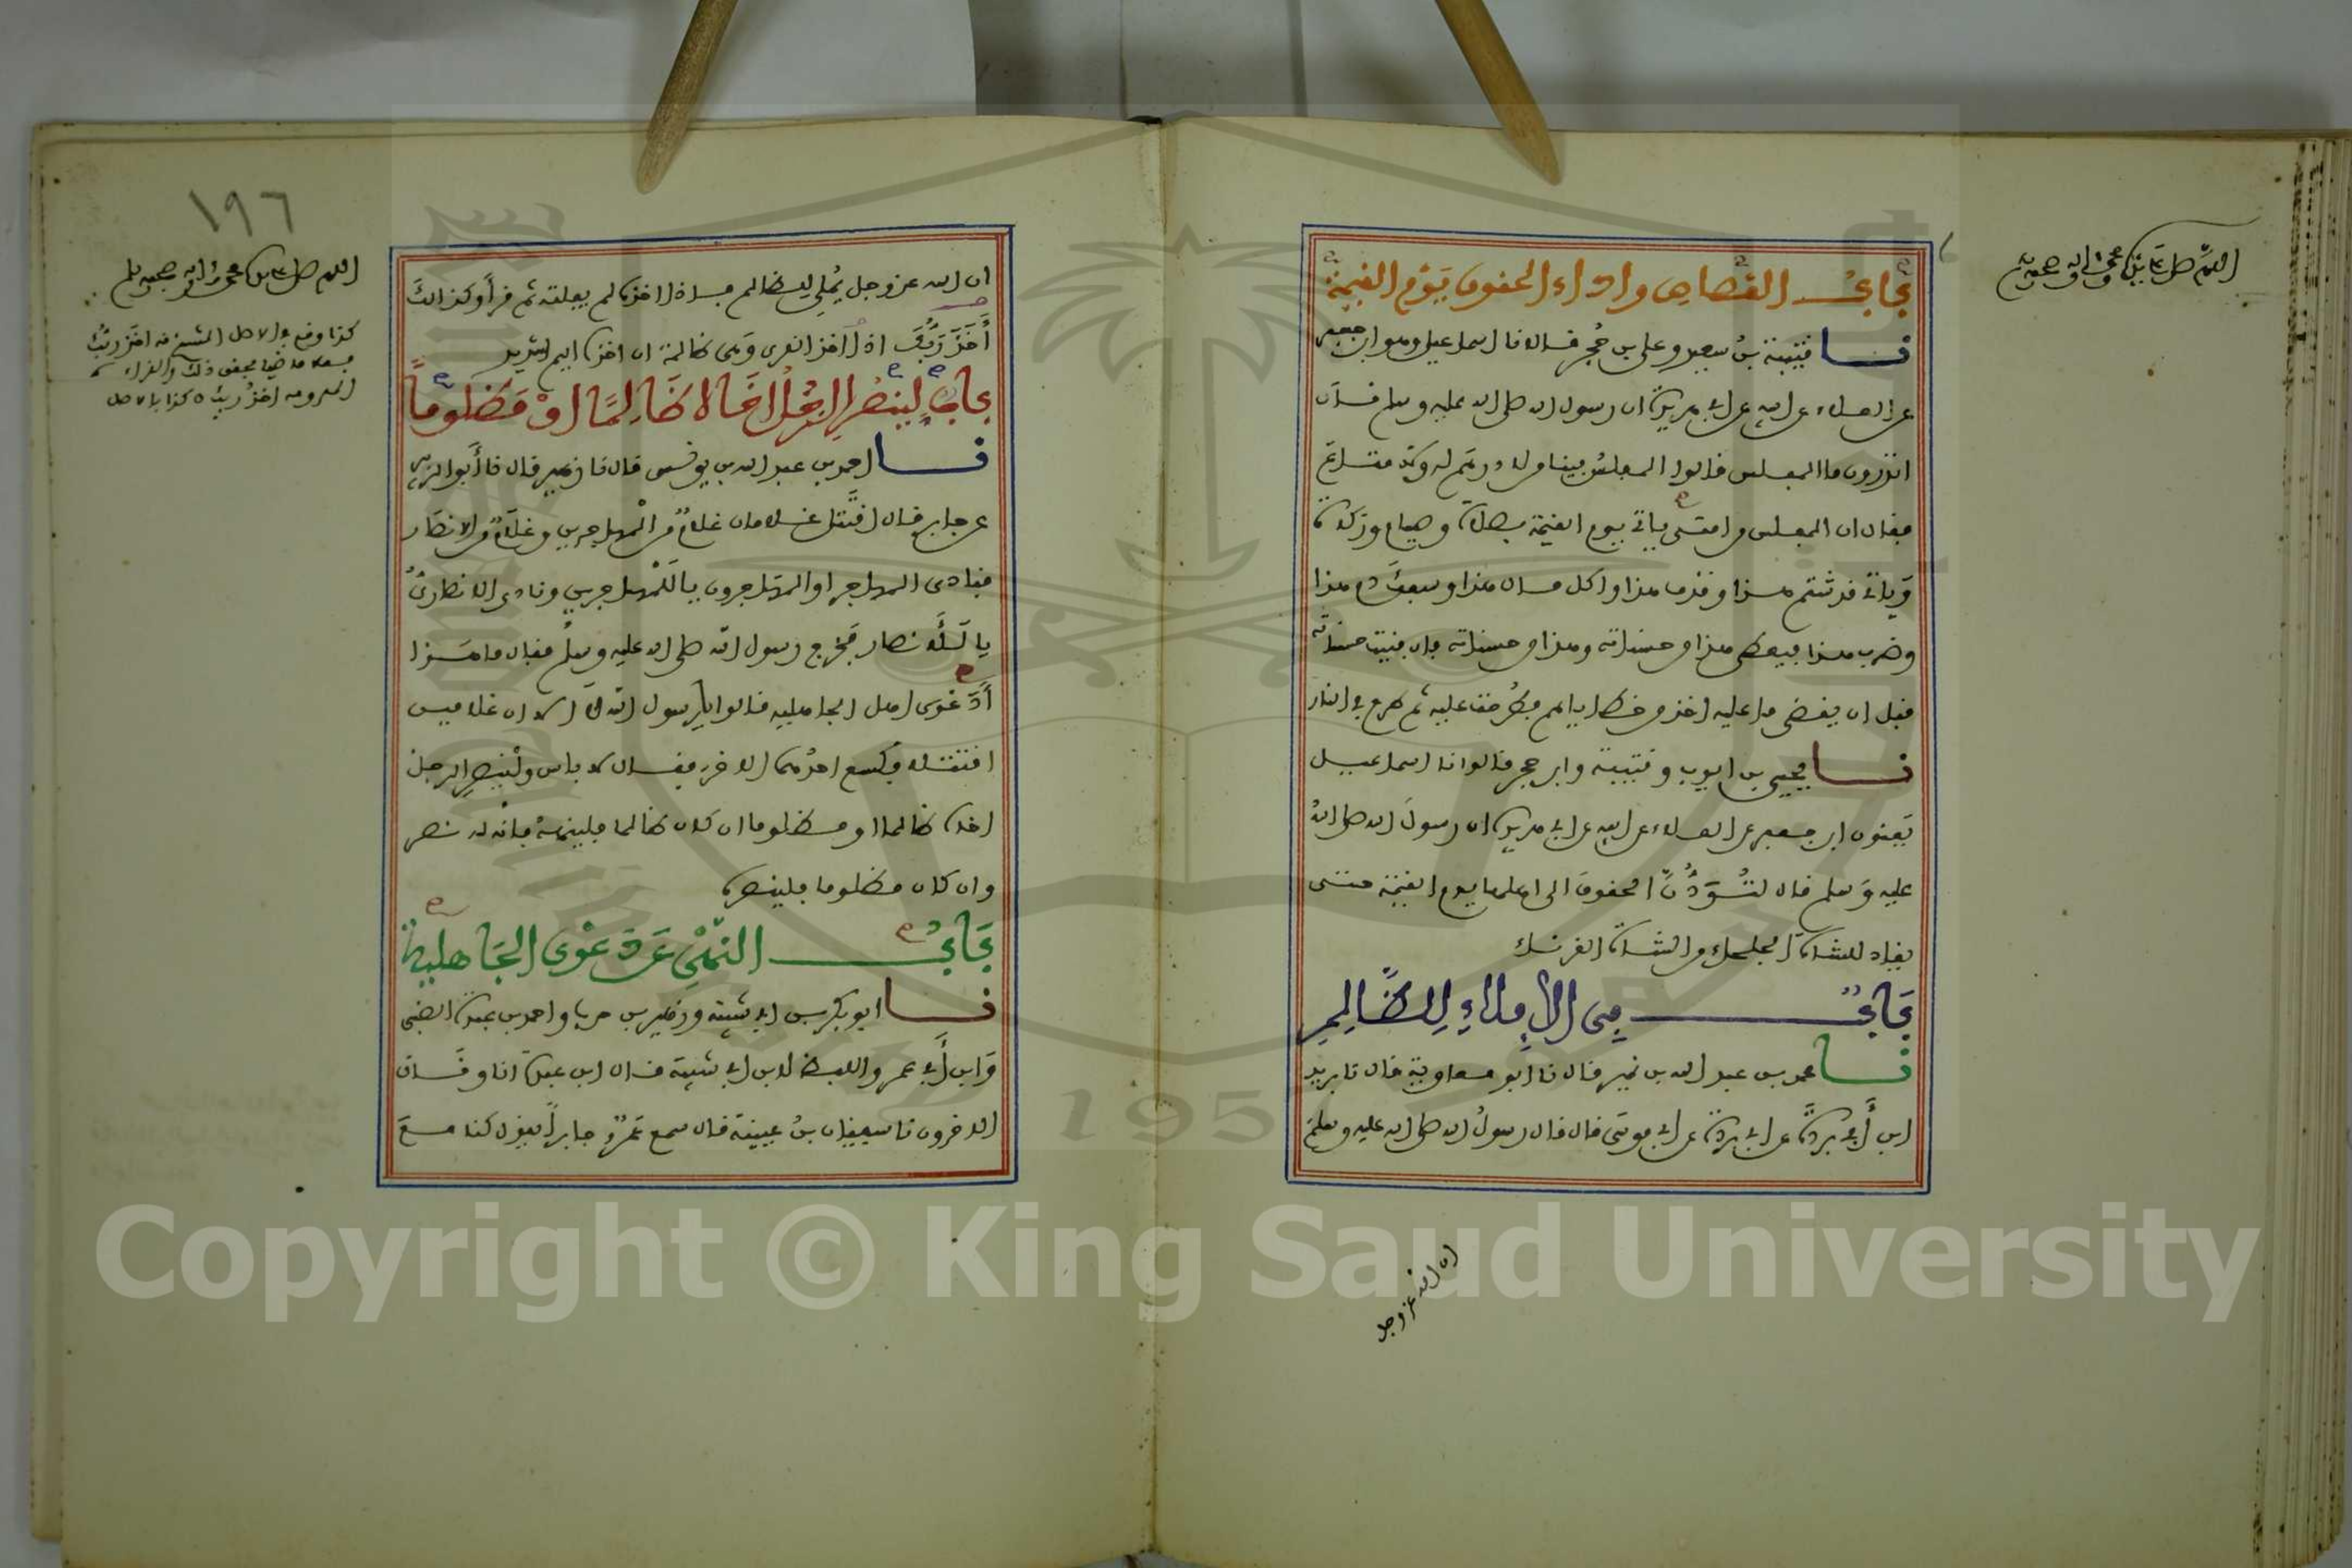 اللهم صل على سيدنا محمد وآله وصحبه
باب القصاص واداء الحقوق يوم القيمة
نا قتيبة بن سعيد وعلي بن حجر قالا نا اسماعيل وهو ابن جعفر
عن العلاء عن ابيه عن ابي هريرة ان رسول الله صلى الله عليه وسلم قال
اتدرون ما المفلس قالوا المفلس فينا من لا درهم له ولا متاع
فقال ان المفلس من امتي ياتي يوم القيمة بصلاة وصيام وزكاة
وياتي قد شتم هذا وقذف هذا واكل مال هذا وسفك دم هذا
وضرب هذا فيعطى هذا من حسناته وهذا من حسناته فان فنيت حسناته
قبل ان يقضى ما عليه اخذ من خطاياهم فطرحت عليه ثم طرح في النار
نا يحيى بن ايوب وقتيبة وابن حجر قالوا نا اسماعيل
يعنون ابن جعفر عن العلاء عن ابيه عن ابي هريرة ان رسول الله صلى الله
عليه وسلم قال لتؤدن الحقوق الى اهلها يوم القيمة حتى
يقاد للشاة الجلحاء من الشاة القرناء
باب في الإملاء للظالم
نا محمد بن عبد الله بن نمير قال نا ابو معاوية قال نا بريد
ابن أبي بردة عن ابي بردة عن ابي موسى قال قال رسول الله صلى الله عليه وسلم
ان الله عز وجل
١٩٦
اللهم صل على سيدنا محمد وآله وصحبه وسلم
ان الله عز وجل يملي للظالم فاذا اخذه لم يفلته ثم قرأ وكذلك
أخذ ربك اذا اخذ القرى وهي ظالمة ان اخذه اليم شديد
باب لينصر الرجل اخاه ظالما او مظلوما
نا احمد بن عبد الله بن يونس قال نا زهير قال نا أبو الزبير
عن جابر قال اقتتل غلامان غلام من المهاجرين وغلام من الانصار
فنادى المهاجر او المهاجرون يا للمهاجرين ونادى الانصاري
يا للأنصار فخرج رسول الله صلى الله عليه وسلم فقال ما هذا
أدعوى اهل الجاهلية قالوا يا رسول الله لا الا ان غلامين
اقتتلا فكسع احدهما الاخر فقال لا باس ولينصر الرجل
اخاه ظالما او مظلوما ان كان ظالما فلينهه فانه له نصر
وان كان مظلوما فلينصره
باب النهي عن دعوى الجاهلية
نا ابو بكر بن ابي شيبة وزهير بن حرب واحمد بن عبدة الضبي
وابن أبي عمر واللفظ لابن ابي شيبة قال ابن عبدة انا وقال
الاخرون نا سفيان بن عيينة قال سمع عمرو جابراً يقول كنا مع
كذا وقع في الاصل
Copyright © King Saud University
195